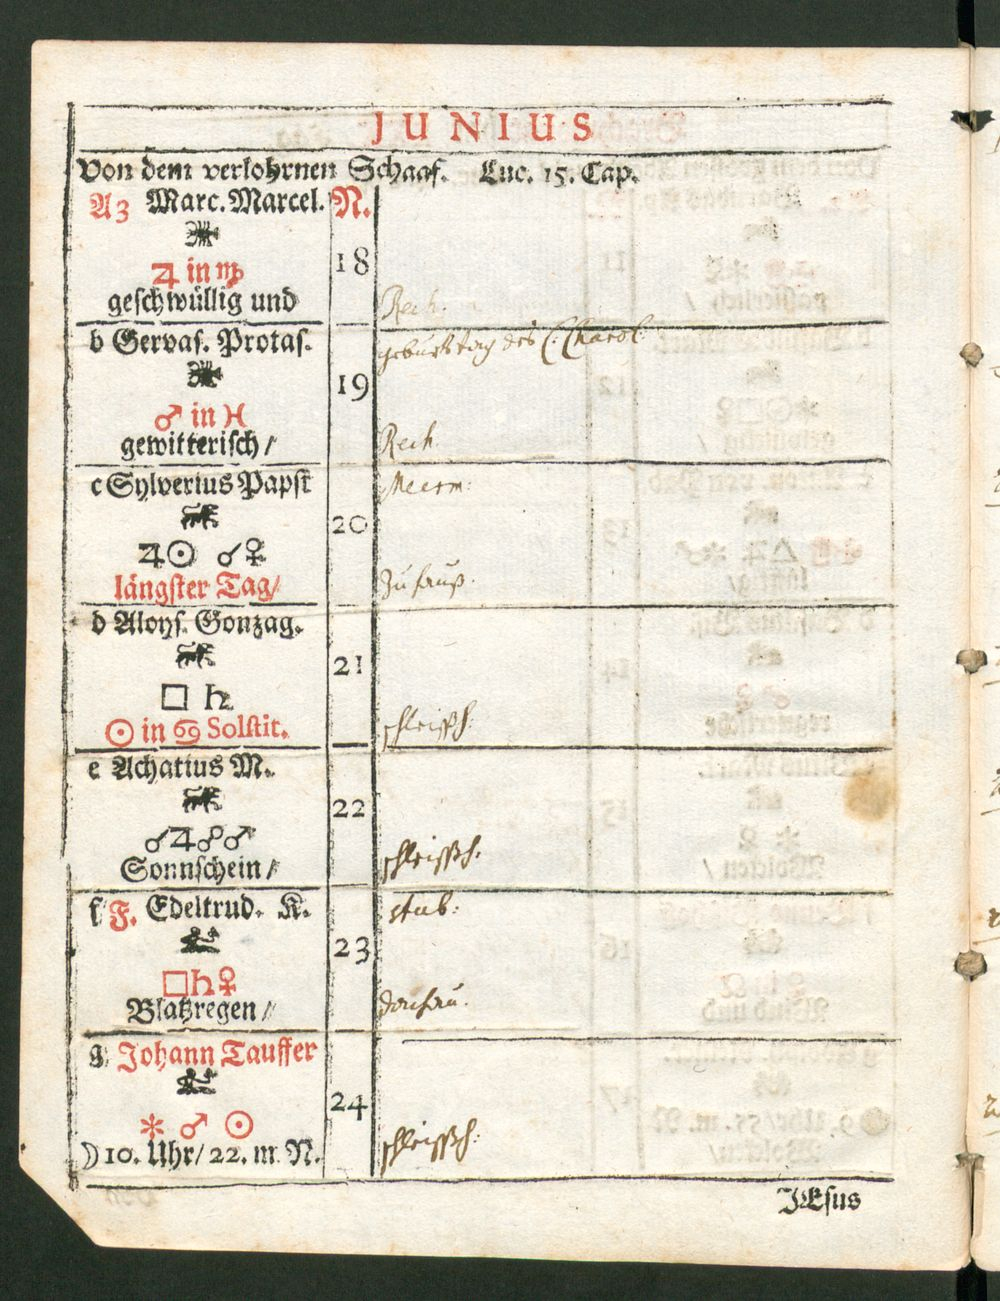 JUNIUS
Von dem verlohrnen Schaaf. Luc. 15. Cap.
A3 Marc. Marcel. N.
♃ in ♍ 18
geschwüllig und
Rech.
b Gervas. Protas.
geburtstag des C. Charol:
19
♂ in ♓
gewitterisch /
Rech.
c Sylverius Papst
Meerm:
20
♃☉ ☌♀
längster Tag /
Zu hauß.
d Aloys. Gonzag.
21
□ ♄
☉ in ♋ Solstit.
schleissh.
e Achatius M.
22
☌♃☍♂
Sonnschein /
schleissh.
f F. Edeltrud. K.
stub:
23
□♄♀
Blatzregen /
g Johann Tauffer
24
⚹ ♂ ☉
☽ 10. Uhr / 22. m. N.
schleissh:
JEsus